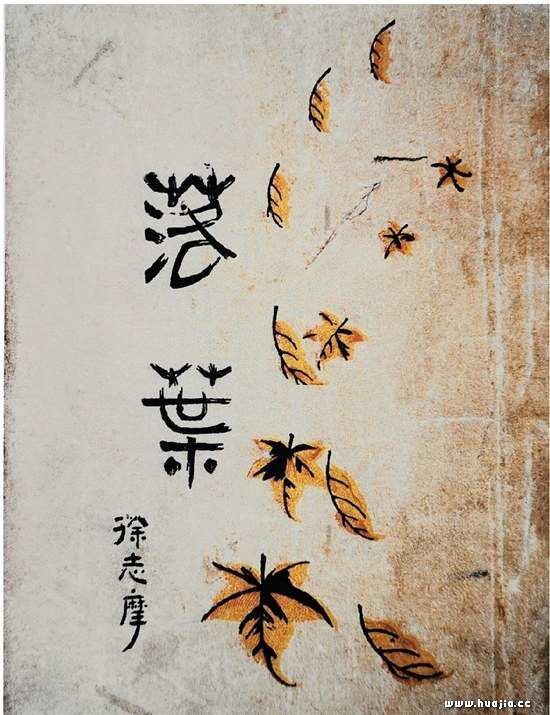 落葉
徐志摩
www.huajia.cc